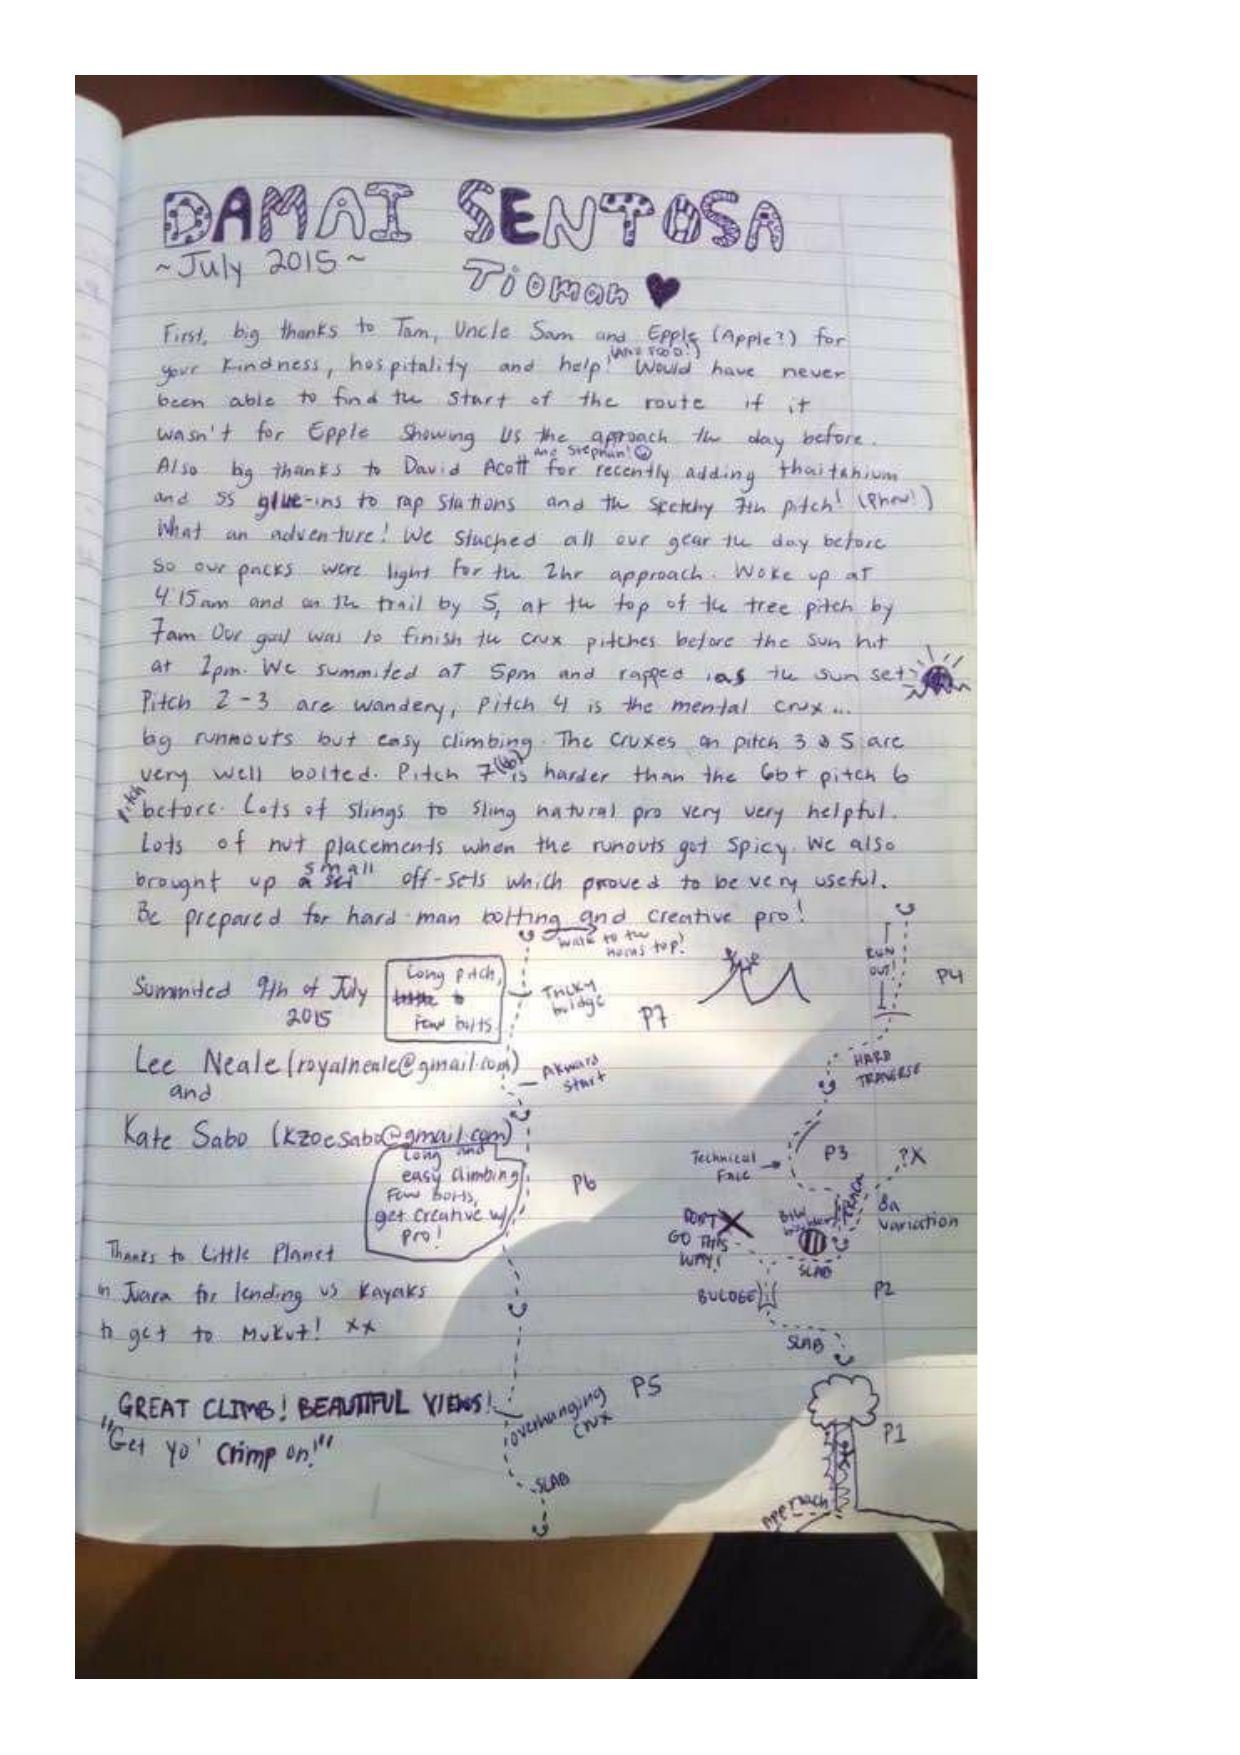 DAMAI SENTOSA
~July 2015~
Tioman
First, big thanks to Tam, Uncle Sam and Epple (Apple?) for
your kindness, hospitality and help! Would have never
been able to find the start of the route if it
wasn't for Epple showing us the aproach the day before.
and Stephan!
Also big thanks to David Acott for recently adding thaitanium
and SS glue-ins to rap stations and the scetchy 7th pitch! (Phew!)
What an adventure! We stached all our gear the day before
so our packs were light for the 2hr approach. Woke up at
4:15am and on the trail by 5, at the top of the tree pitch by
7am Our goal was to finish the crux pitches before the sun hit
at 2pm. We summited at 5pm and rapped as the sun set
Pitch 2-3 are wandery, pitch 4 is the mental crux...
big runnouts but easy climbing. The cruxes on pitch 3 & 5 are
very well bolted. Pitch 7 (6b) is harder than the 6b+ pitch 6
pitch before. Lots of slings to sling natural pro very very helpful.
Lots of nut placements when the runouts got spicy. We also
brought up small off-sets which proved to be very useful.
Be prepared for hard man bolting and creative pro!
walk to the
horns top!
Summited 9th of July
2015
Long pitch,
few bolts
Tricky
bridge
P7
RUN
OUT!
P4
Lee Neale (royalneale@gmail.com)
and
Akward
start
HARD
TRAVERSE
Kate Sabo (kzoesabo@gmail.com)
Long and
easy climbing
Few bolts,
get creative w/
pro!
P6
Technical
Face
P3
?X
TRACK
8a
variation
DON'T
GO THIS
WAY!
SLAB
Thanks to Little Planet
in Juara for lending us Kayaks
to get to Mukut! xx
BULDGE
P2
SLAB
GREAT CLIMB! BEAUTIFUL VIEWS!
"Get yo' crimp on!"
overhanging
crux
P5
SLAB
P1
Approach